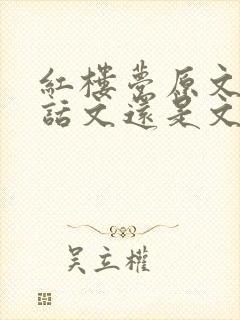 紅樓夢原文
話文還是文
吳立權